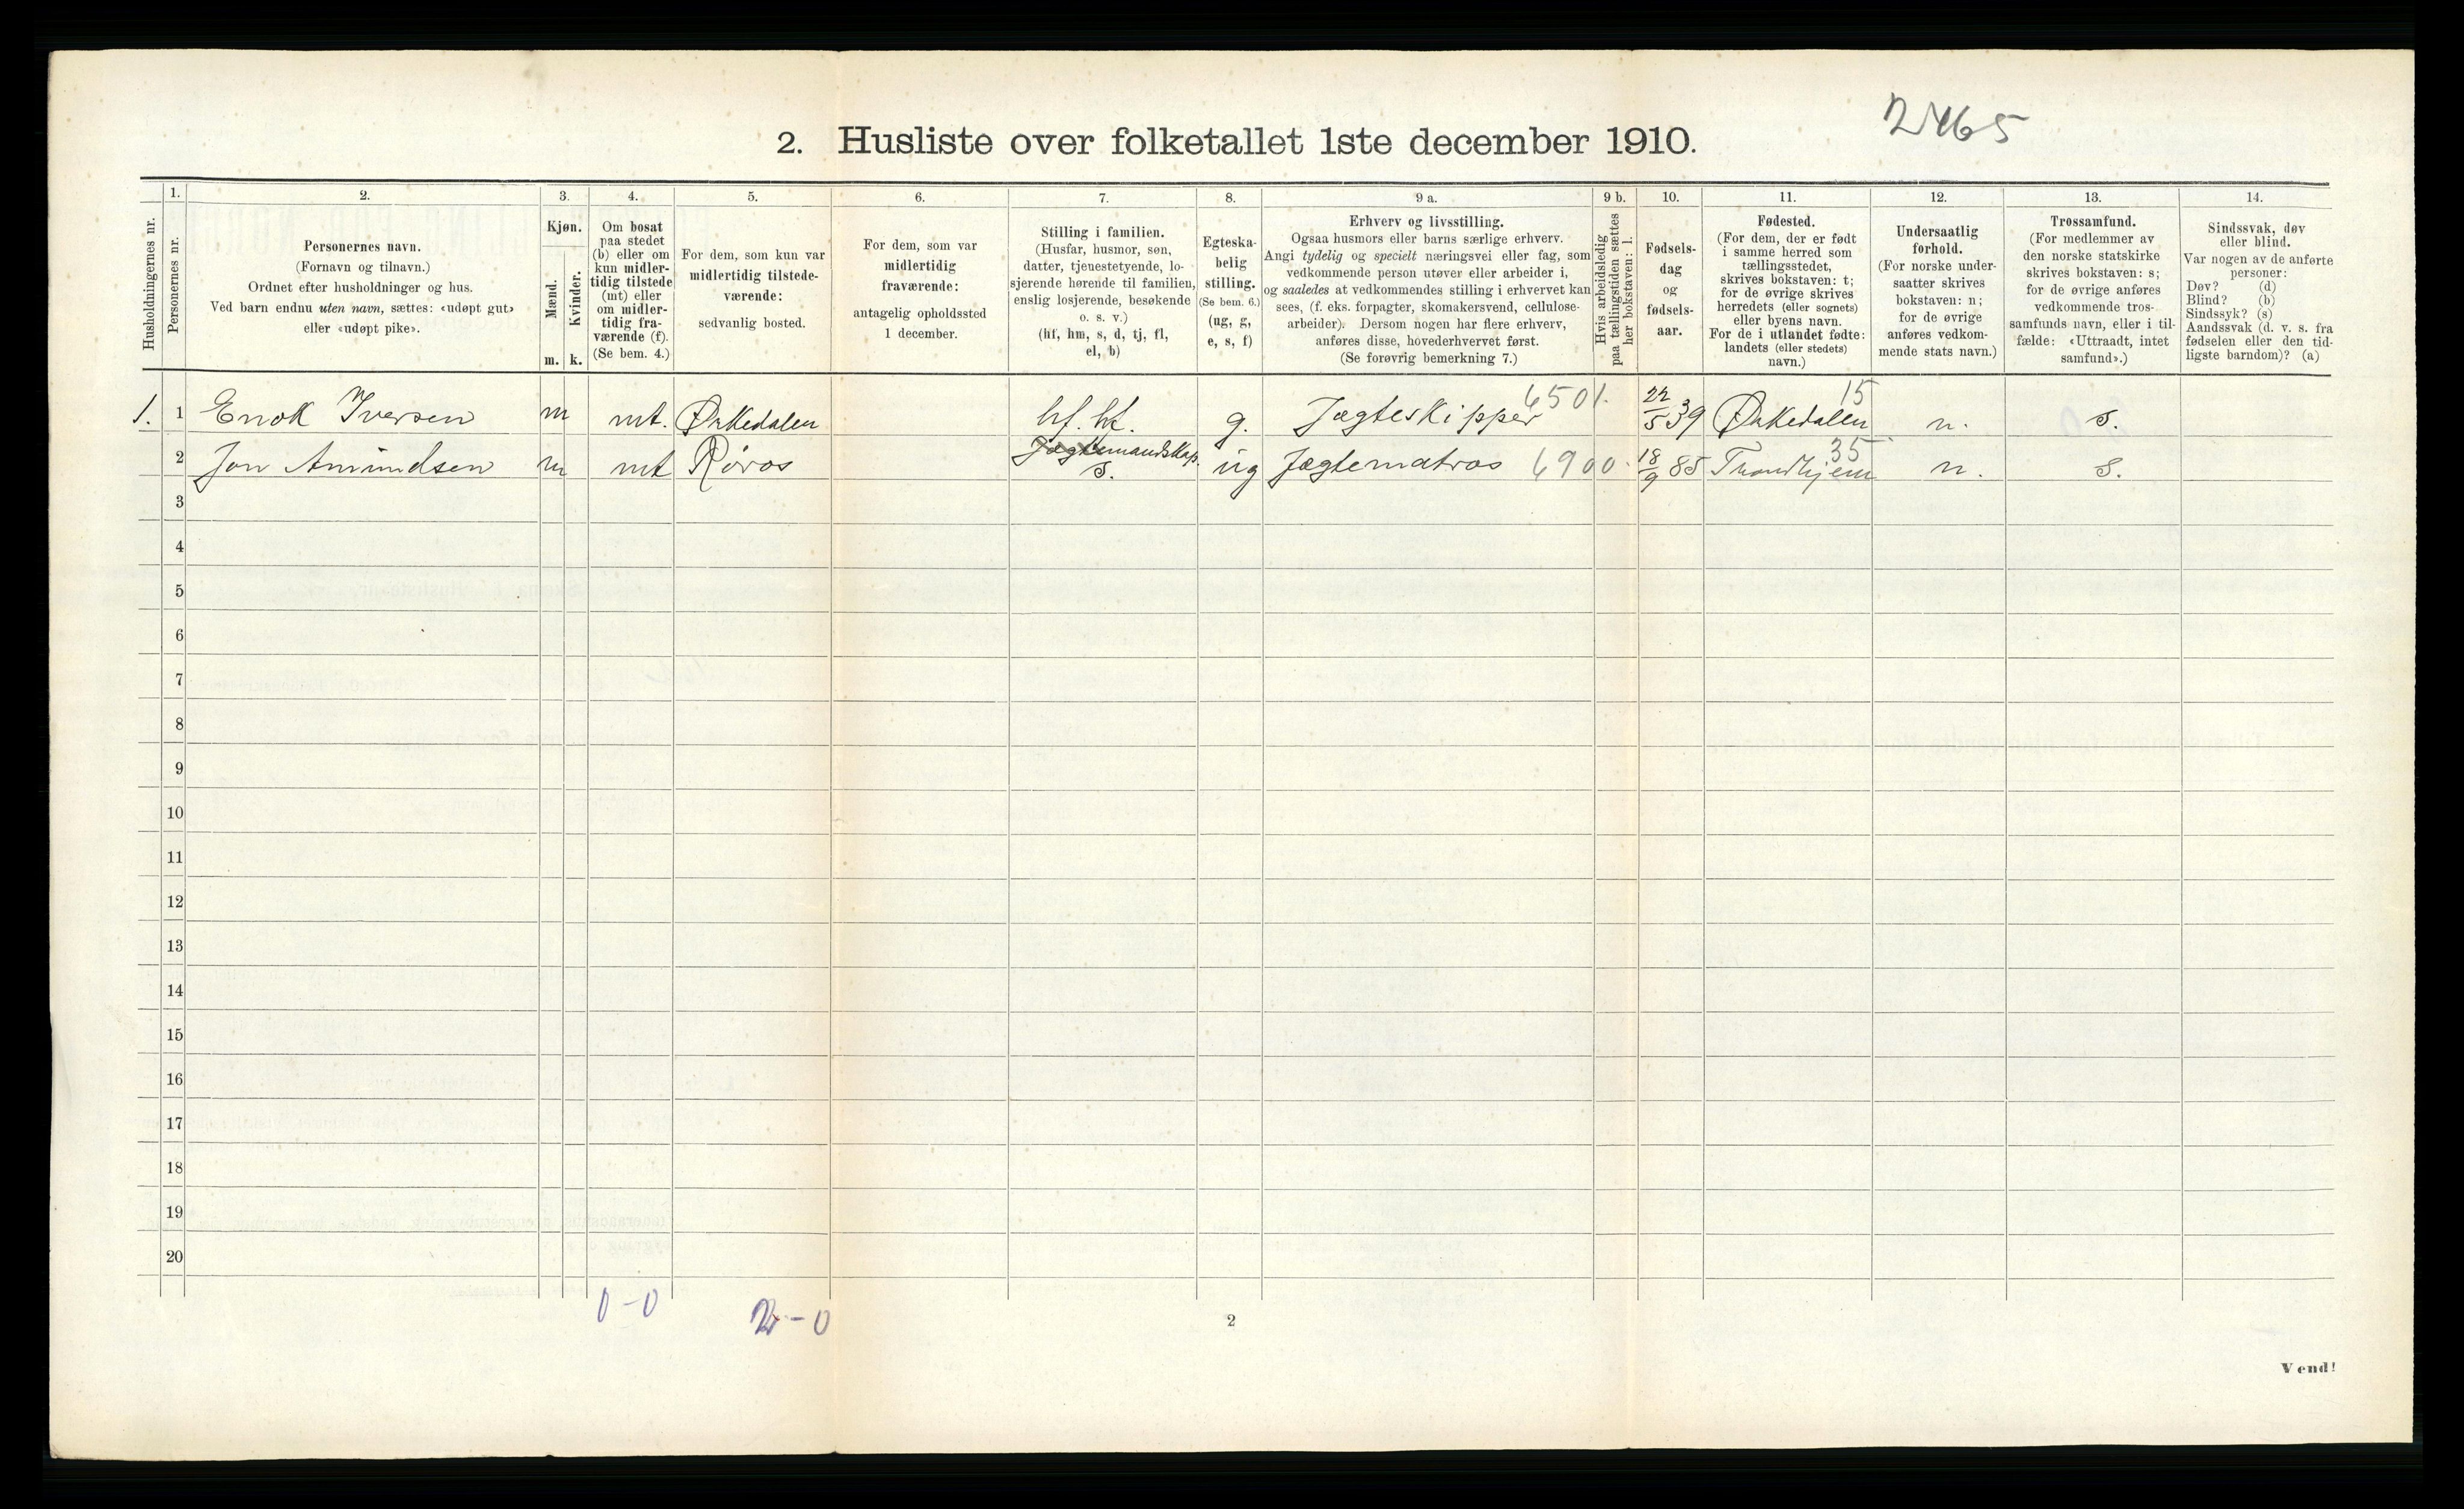 2465
2. Husliste over folketallet 1ste december 1910.
Husholdningernes nr.
1.
Personernes nr.
2.
Personernes navn.
(Fornavn og tilnavn.)
Ordnet efter husholdninger og hus.
Ved barn endnu uten navn, sættes: «udøpt gut»
eller «udøpt pike».
3.
Kjøn.
Mænd.
Kvinder.
m. k.
4.
Om bosat
paa stedet
(b) eller om
kun midler-
tidig tilstede
(mt) eller
om midler-
tidig fra-
værende (f).
(Se bem. 4.)
5.
For dem, som kun var
midlertidig tilstede-
værende:
sedvanlig bosted.
6.
For dem, som var
midlertidig
fraværende:
antagelig opholdssted
1 december.
7.
Stilling i familien.
(Husfar, husmor, søn,
datter, tjenestetyende, lo-
sjerende hørende til familien,
enslig losjerende, besøkende
o. s. v.)
(hf, hm, s, d, tj, fl,
el, b)
8.
Egteska-
belig
stilling.
(Se bem. 6.)
(ug, g,
e, s, f)
9 a.
Erhverv og livsstilling.
Ogsaa husmors eller barns særlige erhverv.
Angi tydelig og specielt næringsvei eller fag, som
vedkommende person utøver eller arbeider i,
og saaledes at vedkommendes stilling i erhvervet kan
sees, (f. eks. forpagter, skomakersvend, cellulose-
arbeider). Dersom nogen har flere erhverv,
anføres disse, hovederhvervet først.
(Se forøvrig bemerkning 7.)
9 b.
Hvis arbeidsledig
paa tællingstiden sættes
her bokstaven: l.
10.
Fødsels-
dag
og
fødsels-
aar.
11.
Fødested.
(For dem, der er født
i samme herred som
tællingsstedet,
skrives bokstaven: t;
for de øvrige skrives
herredets (eller sognets)
eller byens navn.
For de i utlandet fødte:
landets (eller stedets)
navn.)
12.
Undersaatlig
forhold.
(For norske under-
saatter skrives
bokstaven: n;
for de øvrige
anføres vedkom-
mende stats navn.)
13.
Trossamfund.
(For medlemmer av
den norske statskirke
skrives bokstaven: s;
for de øvrige anføres
vedkommende tros-
samfunds navn, eller i til-
fælde: «Uttraadt, intet
samfund».)
14.
Sindssvak, døv
eller blind.
Var nogen av de anførte
personer:
Døv? (d)
Blind? (b)
Sindssyk? (s)
Aandssvak (d. v. s. fra
fødselen eller den tid-
ligste barndom)? (a)
1. 1 Enok Iversen m mt. Ørkedalen hf. g. Jægteskipper 6501. 22/5 39 Ørkedalen 15 n. s.
2 Jon Amundsen m mt Røros Jægtemandskap. s. ug Jægtematros 6900. 18/9 85 Trondhjem 35 n. s.
3
4
5
6
7
8
9
10
11
12
13
14
15
16
17
18
19
20
0-0
2-0
2
Vend!